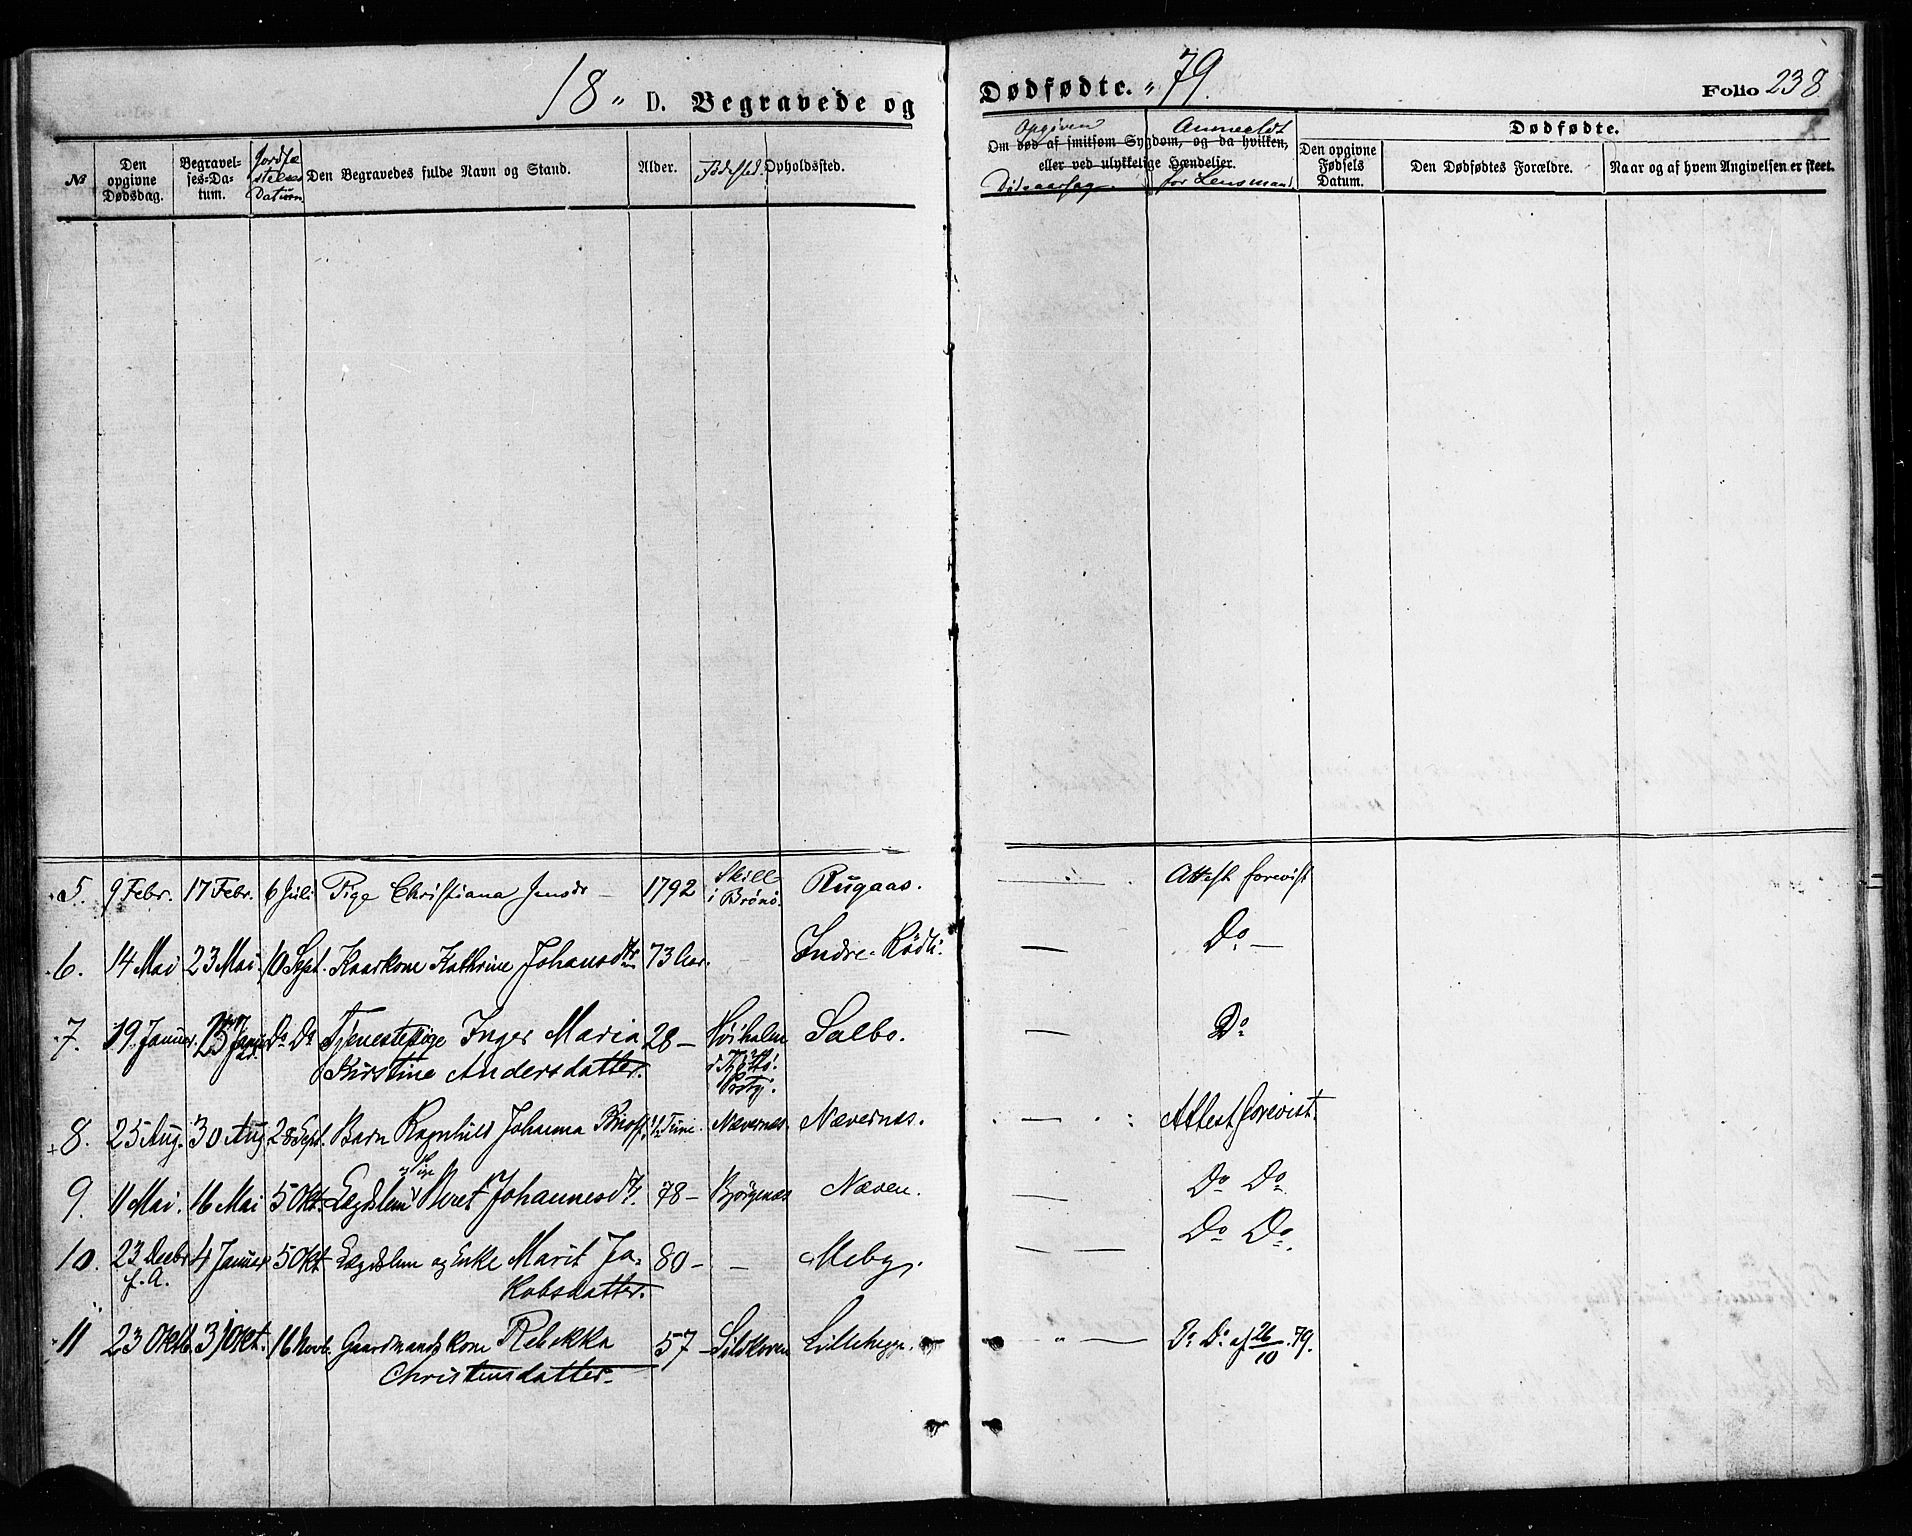 18 " D. Begravede og Dødfødte. " 79.
Folio 238
№
Den opgivne Dødsdag.
Begravel-ses-Da-tum.
Jordfæ-stelses Datum
Den Begravedes fulde Navn og Stand.
Alder.
Fødested.
Opholdssted.
Opgiven
Om død af smitsom Sygdom, og da hvilken,
eller ved ulykkelige Hændelser.
Dødsaarsag
Anmeldt
for Lensmand
Dødfødte.
Den opgivne Fødsels Datum.
Den Dødfødtes Forældre.
Naar og af hvem Angivelsen er skeet.
5. 9 Febr. 17 Febr. 6 Juli Pige Christiana Jensdr — 1792 Skille i Brønø. Rugaas. — Attest forevist
6. 14 Mai 23 Mai 10 Sept. Kaarkone Kathrine Johansdtr 73 Aar. — Indre-Rødli. — Do —
7. 19 Januar. 25 Do Do Tjenestepige Inger Maria 28 — Salbo. — Do
Kirstine Andersdatter.
8. 25 Aug. 30 Aug 28 Sept. Barn Ragnhild Johanna 1/2 Time. Nævernes Nævernes. — Attest forevist.
9. 11 Mai. 16 Mai 5 Okt. Lægdslem og Pige Johannesdtr. 78 — Bjørgenæs Næven. — Do Do
10. 23 Decbr 4 Januar 5 Okt Lægdslem og Enke Marit Ja- 80 — — Meby. — — Do Do.
f. A. kobsdatter.
11 23 Oktb. 31 Okt. 16 Novb. Gaardmandskone Rebekka 57 — Sildkoven " — Do Do af 26/10 79.
Christensdatter.